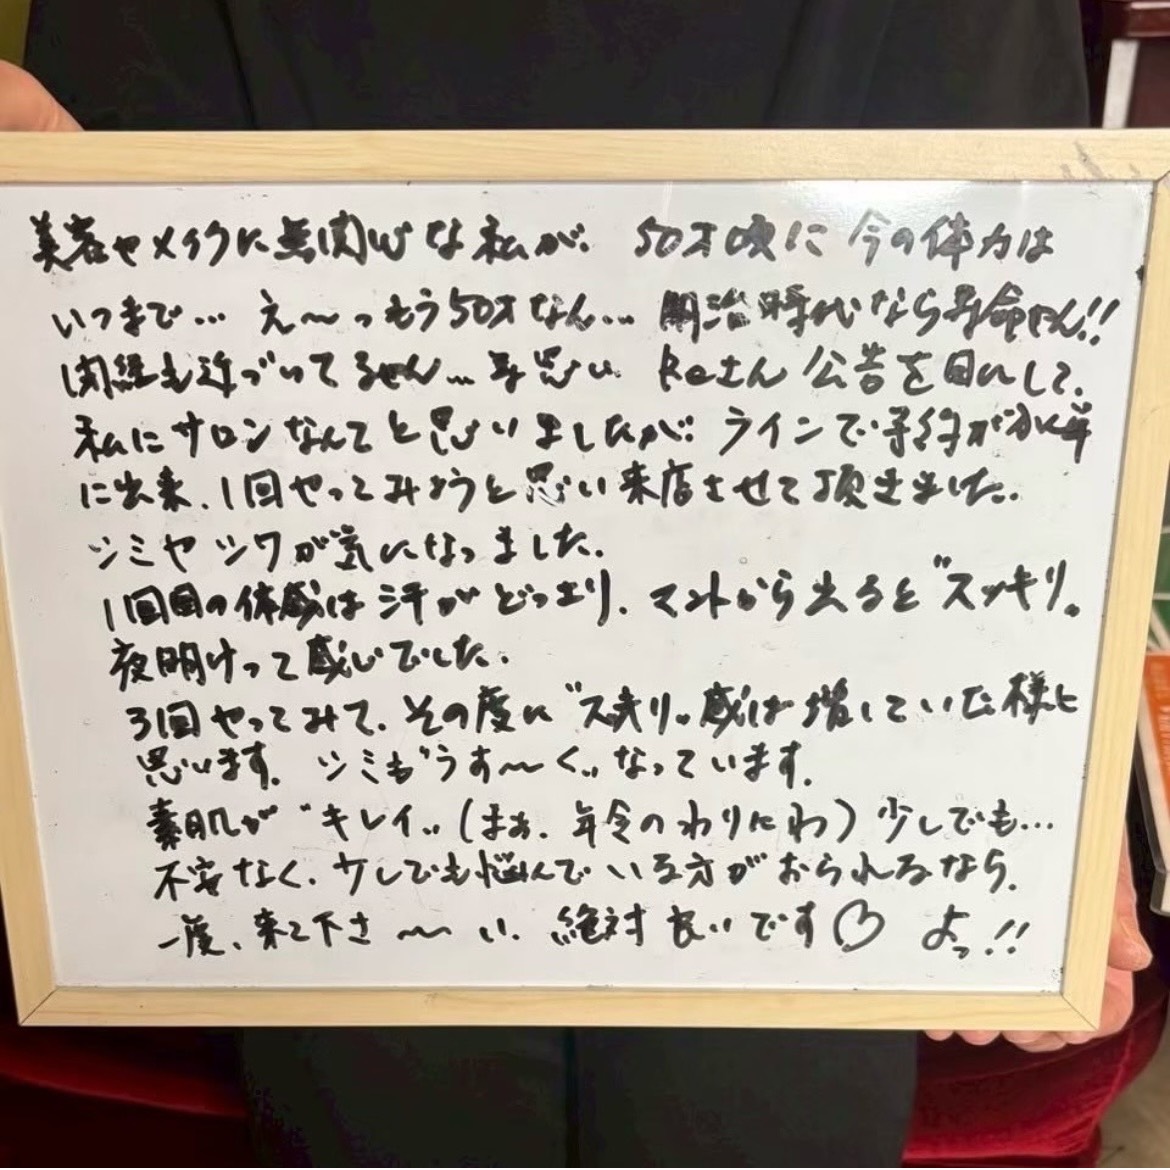 美容やメイクに無関心な私が、50才頃に今の体力は
いつまで… え〜っもう50才なん… 明治時代なら寿命やん!!
閉経も近づいてるやん… 等思い Reさん 公告を目にして、
私にサロンなんてと思いましたが、ラインで予約が簡単
に出来、1回やってみようと思い来店させて頂きました。
シミやシワが気になってました。
1回目の体感は汗がどっさり、マントから出ると"スッキリ"
夜明けって感じでした。
3回やってみて、その度に"スッキリ"感は増していた様に
思います。シミも"うす〜く"なっています。
素肌が"キレイ"(まぁ、年令のわりにわ)少しでも…
不安なく、少しでも悩んでいる方がおられるなら、
一度、来て下さ〜い、絶対良いです♡ よっ!!